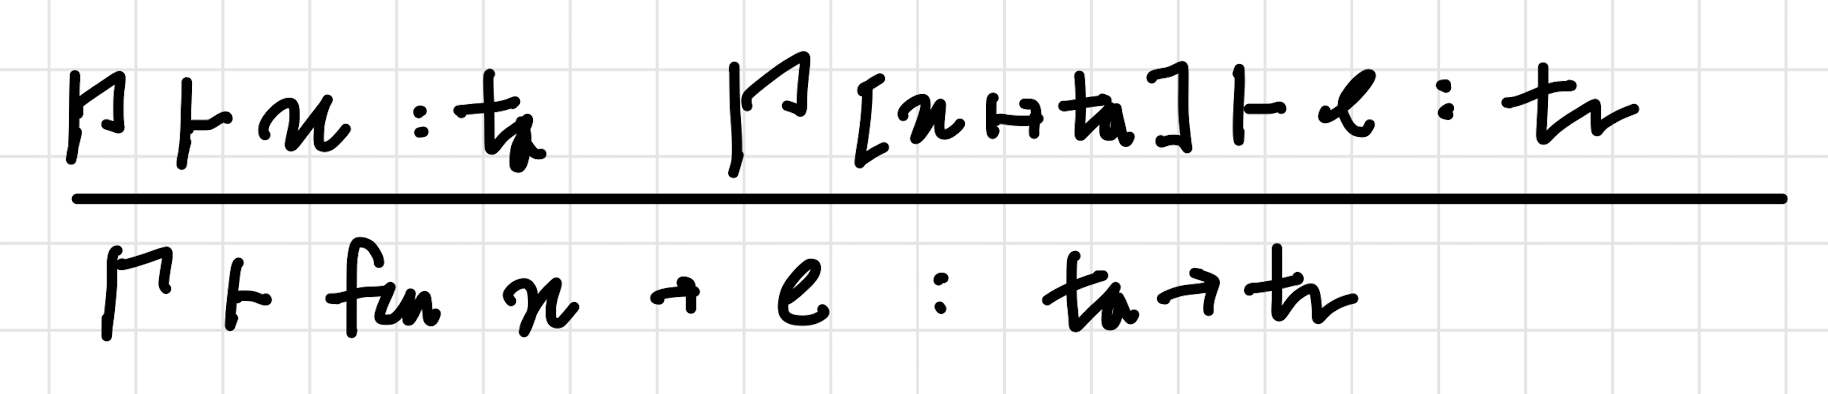 Γ ⊢ x : ta Γ[x ↦ ta] ⊢ e : tr
Γ ⊢ fun x → e : ta → tr